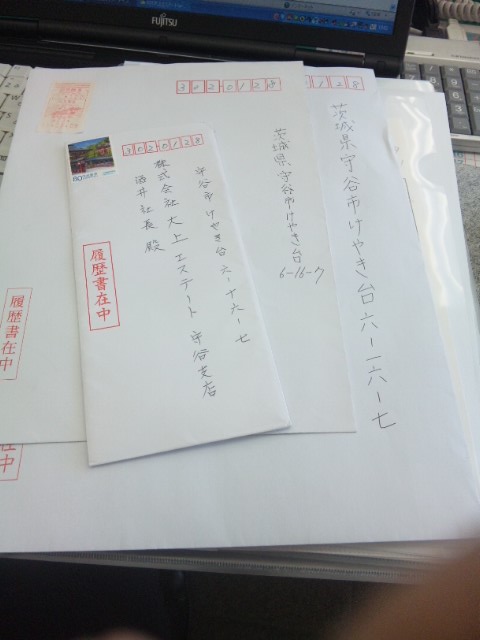 FUJITSU
3020128
茨城県守谷市けやき台六-一六-七
3020128
茨城県守谷市けやき台
6-16-7
履歴書在中
80
3020128
守谷市けやき台 六-十六-七
株式会社大上エステート 守谷支店
酒井社長殿
履歴書在中
在中